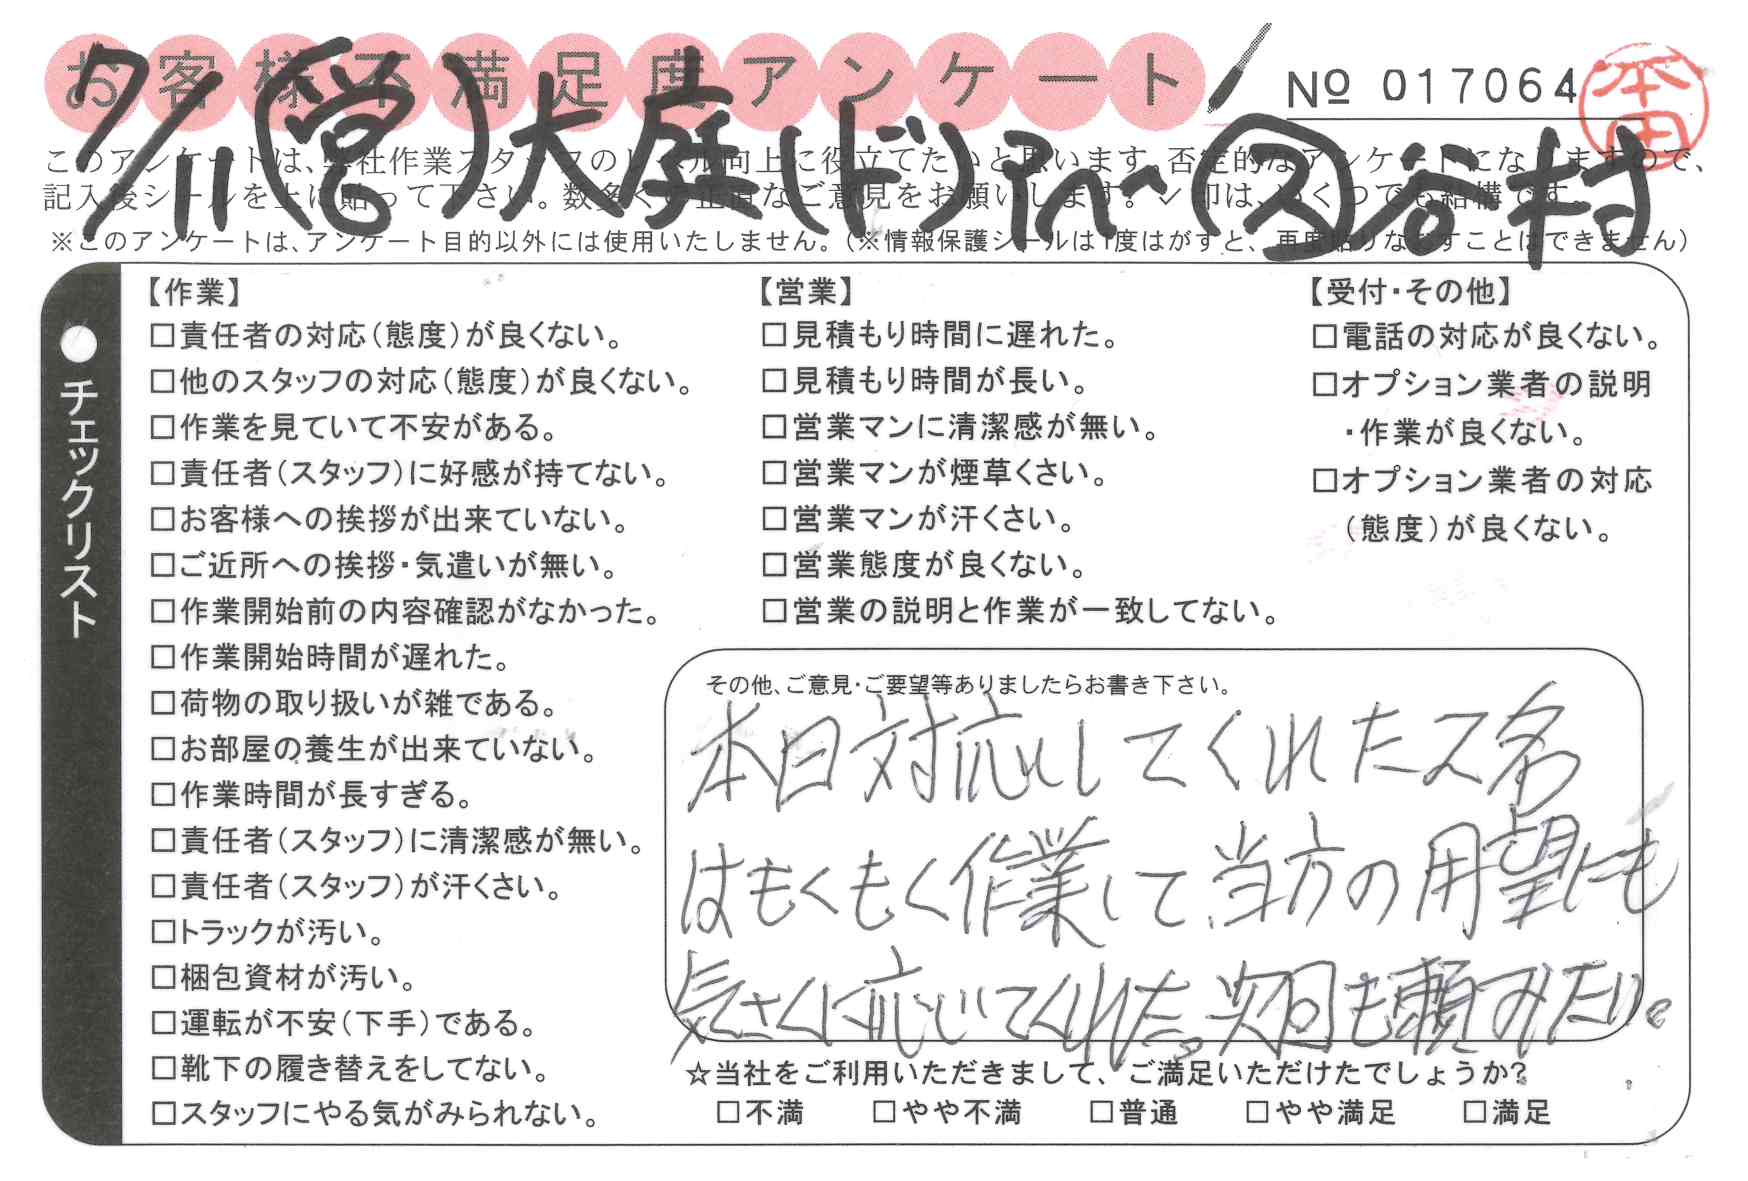 お客様不満足度アンケート
№ 017064
本田
7/11 (営)大庭(ド) (ス)谷村
このアンケートは、弊社作業スタッフのレベル向上に役立てたいと思います。否定的なアンケートになりますので、
記入後シールを上に貼って下さい。数多くの正直なご意見をお願いします。✓印は、いくつでも結構です。
※このアンケートは、アンケート目的以外には使用いたしません。(※情報保護シールは1度はがすと、再度貼りなおすことはできません)
●チェックリスト
【作業】
□責任者の対応(態度)が良くない。
□他のスタッフの対応(態度)が良くない。
□作業を見ていて不安がある。
□責任者(スタッフ)に好感が持てない。
□お客様への挨拶が出来ていない。
□ご近所への挨拶・気遣いが無い。
□作業開始前の内容確認がなかった。
□作業開始時間が遅れた。
□荷物の取り扱いが雑である。
□お部屋の養生が出来ていない。
□作業時間が長すぎる。
□責任者(スタッフ)に清潔感が無い。
□責任者(スタッフ)が汗くさい。
□トラックが汚い。
□梱包資材が汚い。
□運転が不安(下手)である。
□靴下の履き替えをしてない。
□スタッフにやる気がみられない。
【営業】
□見積もり時間に遅れた。
□見積もり時間が長い。
□営業マンに清潔感が無い。
□営業マンが煙草くさい。
□営業マンが汗くさい。
□営業態度が良くない。
□営業の説明と作業が一致してない。
【受付・その他】
□電話の対応が良くない。
□オプション業者の説明
・作業が良くない。
□オプション業者の対応
(態度)が良くない。
その他、ご意見・ご要望等ありましたらお書き下さい。
本日対応してくれた2名
はもくもく作業して当方の用望にも
気さくに応じてくれた。次回も頼みたい。
☆当社をご利用いただきまして、ご満足いただけたでしょうか?
□不満 □やや不満 □普通 □やや満足 □満足